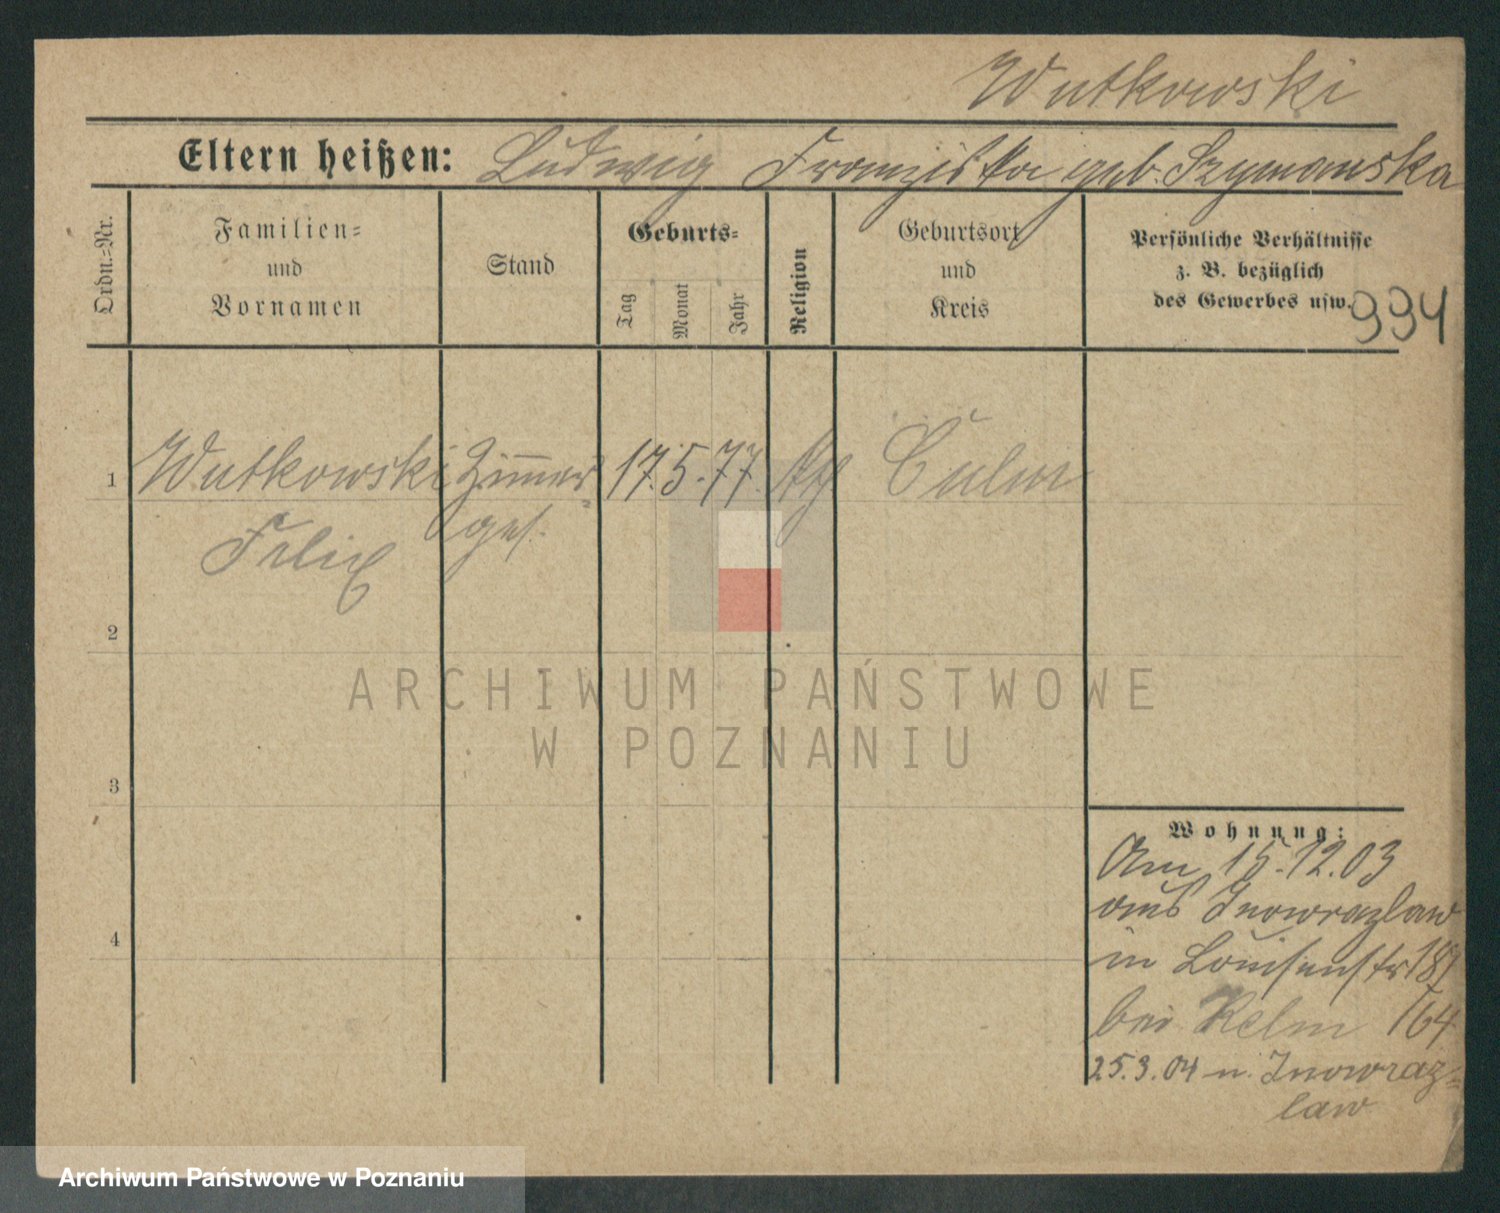 Wutkowski
Eltern heißen: Ludwig Franziska geb. Szymanska
Ordn.=Nr.
Familien=
und
Vornamen
Stand
Geburts=
Tag
Monat
Jahr
Religion
Geburtsort
und
Kreis
Persönliche Verhältnisse
z. B. bezüglich
des Gewerbes usw.
994
1 Wutkowski Zimmer= 17. 5. 77. kth Culm
Felix ges.
2
ARCHIWUM PAŃSTWOWE
W POZNANIU
3
Wohnung:
Am 15.12.03
aus Inowrazlaw
4
in Louisenstr 187
bei Kelm 164
25.3.04 n. Inowraz=
law
Archiwum Państwowe w Poznaniu